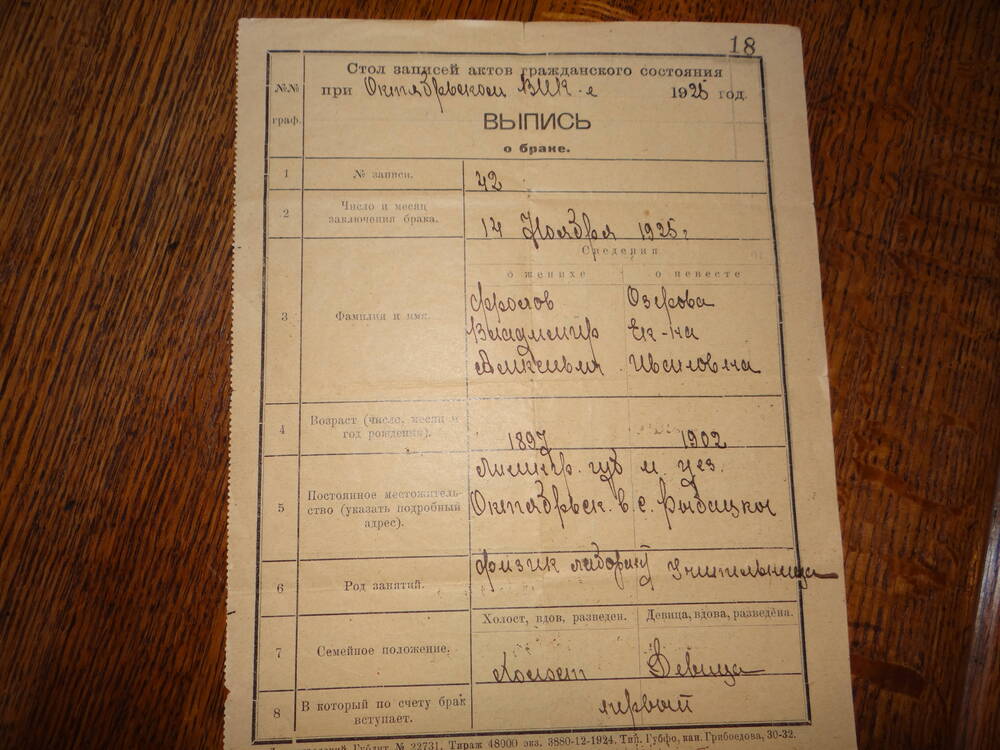 18
Стол записей актов гражданского состояния
№№ граф.
при Октябрьском ВИК-е 1925 год.
ВЫПИСЬ
о браке.
1 № записи. 42
2 Число и месяц заключения брака. 14 Ноября 1925 г
Сведения
о женихе о невесте
3 Фамилия и имя.
Фролов Озерова
Владимир Ек-на
Алексеевич Ивановна
4 Возраст (число, месяц и год рождения). 1897 1902
5 Постоянное местожительство (указать подробный адрес).
Ленингр. губ и уез.
Октябрьск. в. с. Рыбацкое
6 Род занятий. Физик лаборант Учительница
Холост, вдов, разведен. Девица, вдова, разведена.
7 Семейное положение. Холост Девица
8 В который по счету брак вступает. первый
Гублит № 22731. Тираж 48000 экз. 3880-12-1924. Тип. Губфо, кан. Грибоедова, 30-32.